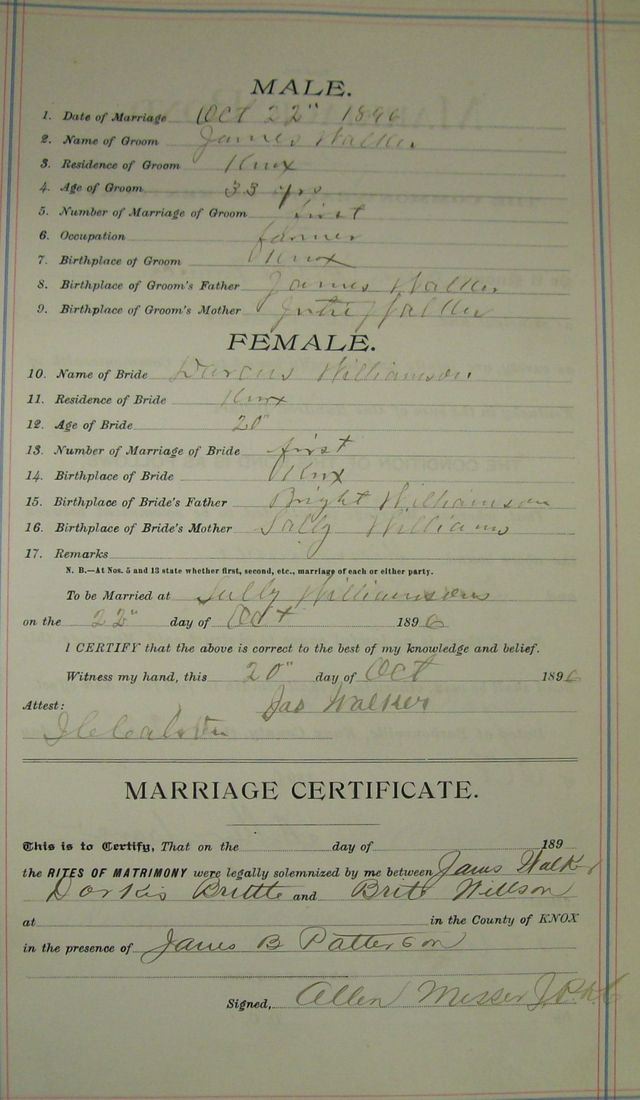 MALE.
1. Date of Marriage Oct 22" 1896
2. Name of Groom James Walker
3. Residence of Groom Knox
4. Age of Groom 33 yrs
5. Number of Marriage of Groom first
6. Occupation farmer
7. Birthplace of Groom Knox
8. Birthplace of Groom's Father James Walker
9. Birthplace of Groom's Mother Walker
FEMALE.
10. Name of Bride Darcus Williamson
11. Residence of Bride Knox
12. Age of Bride 20
13. Number of Marriage of Bride first
14. Birthplace of Bride Knox
15. Birthplace of Bride's Father Bright Williamson
16. Birthplace of Bride's Mother Sally Williams
17. Remarks
N. B.—At Nos. 5 and 13 state whether first, second, etc., marriage of each or either party.
To be Married at Sally Williamsons
on the 22" day of Oct 1896
I CERTIFY that the above is correct to the best of my knowledge and belief.
Witness my hand, this 20" day of Oct 1896
Jas Walker
Attest:
MARRIAGE CERTIFICATE.
This is to Certify, That on the day of 189
the RITES OF MATRIMONY were legally solemnized by me between James Walker
Dorkis and Willson
at in the County of KNOX
in the presence of James B Patterson
Signed, Allen Messer